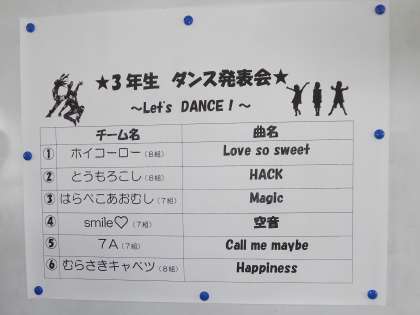 ★3年生 ダンス発表会★
～Let's DANCE！～
チーム名 曲名
① ホイコーロー（8組） Love so sweet
② とうもろこし（8組） HACK
③ はらぺこあおむし（7組） Magic
④ smile♡（7組） 空音
⑤ 7A（7組） Call me maybe
⑥ むらさきキャベツ（8組） Happiness